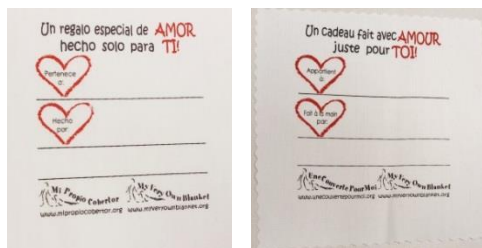 Un regalo especial de AMOR
hecho solo para TI!
Pertenece
a:
Hecho
por:
Mi Propio Cobertor
My Very Own Blanket
www.mipropiocobertor.org www.myveryownblanket.org
Un cadeau fait avec AMOUR
juste pour TOI!
Appartient
à:
Fait à la main
par:
Une Couverte Pour Moi
My Very Own Blanket
www.unecouvertepourmoi.org www.myveryownblanket.org